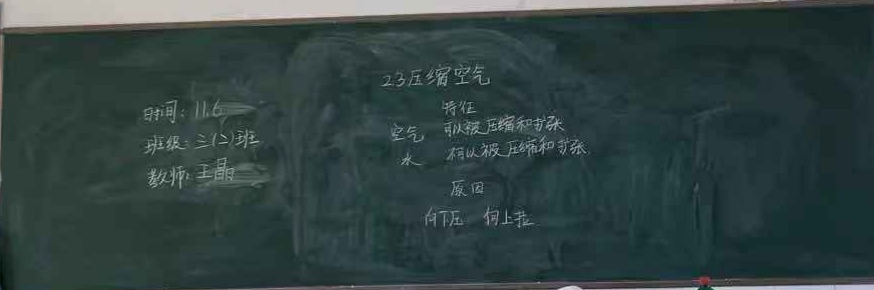 时间：11.6
班级：三(2)班
教师：王晶
2.3压缩空气
特征
空气 可以被压缩和扩张
水 不可以被压缩和扩张
原因
向下压 向上拉